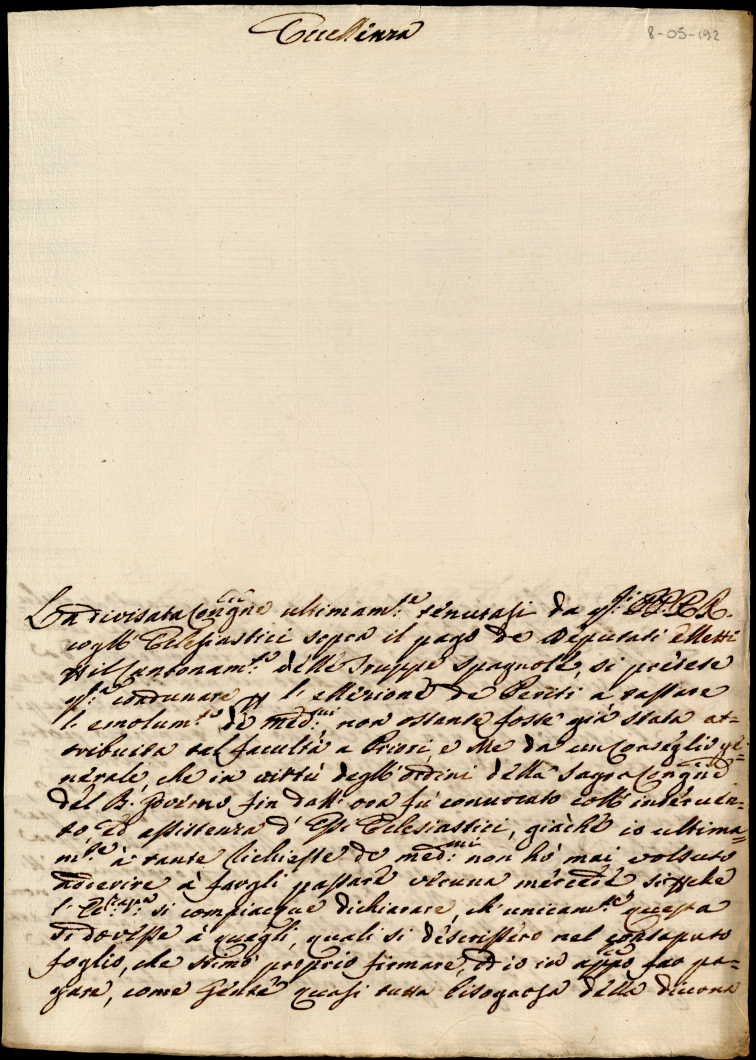 Eccellenza
8-05-192
La divisata Congne ultimam.te tenutasi da q.ti PP. R.
cogl'Eclesiastici sopra il pago de Deputati eletti
il Cantonam.to delle Truppe Spagnole, si pretese
condunare l'elezione de Periti a tassare
l'emolum.to de med.mi non ostante fosse già stata at=
tribuita tal facultà a Priori, e Me da un Conseglio ge=
nerale, che in virtù degl'ordini della Sagra Congne
del B. Governo fin dall'ora fù convocato coll'interven=
to ed assistenza d'Essi Eclesiastici, giachè io ultima=
m.te à tante richieste de med.mi non hò mai volsuto
aderire à fargli passare veruna mercede, si che
l' si compiacque dichiarare, ch'unicam.te questa
si dovesse à quegli, quali si descrissero nel consaputo
foglio, che stimò proprio firmare, ed io in appo far pa=
gare, come Gente quasi tutta bisognosa della diurna